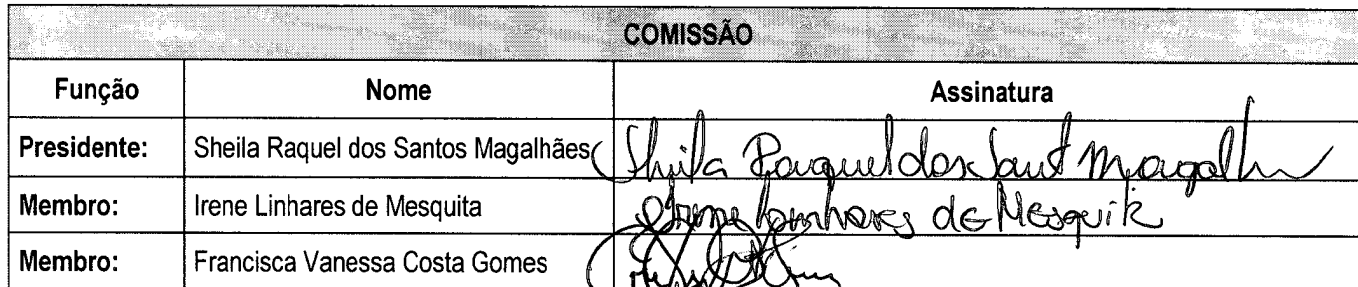 COMISSÃO
Função Nome Assinatura
Presidente: Sheila Raquel dos Santos Magalhães Sheila Raquel dos Sant Magalh
Membro: Irene Linhares de Mesquita Irene Linhares de Mesquita
Membro: Francisca Vanessa Costa Gomes